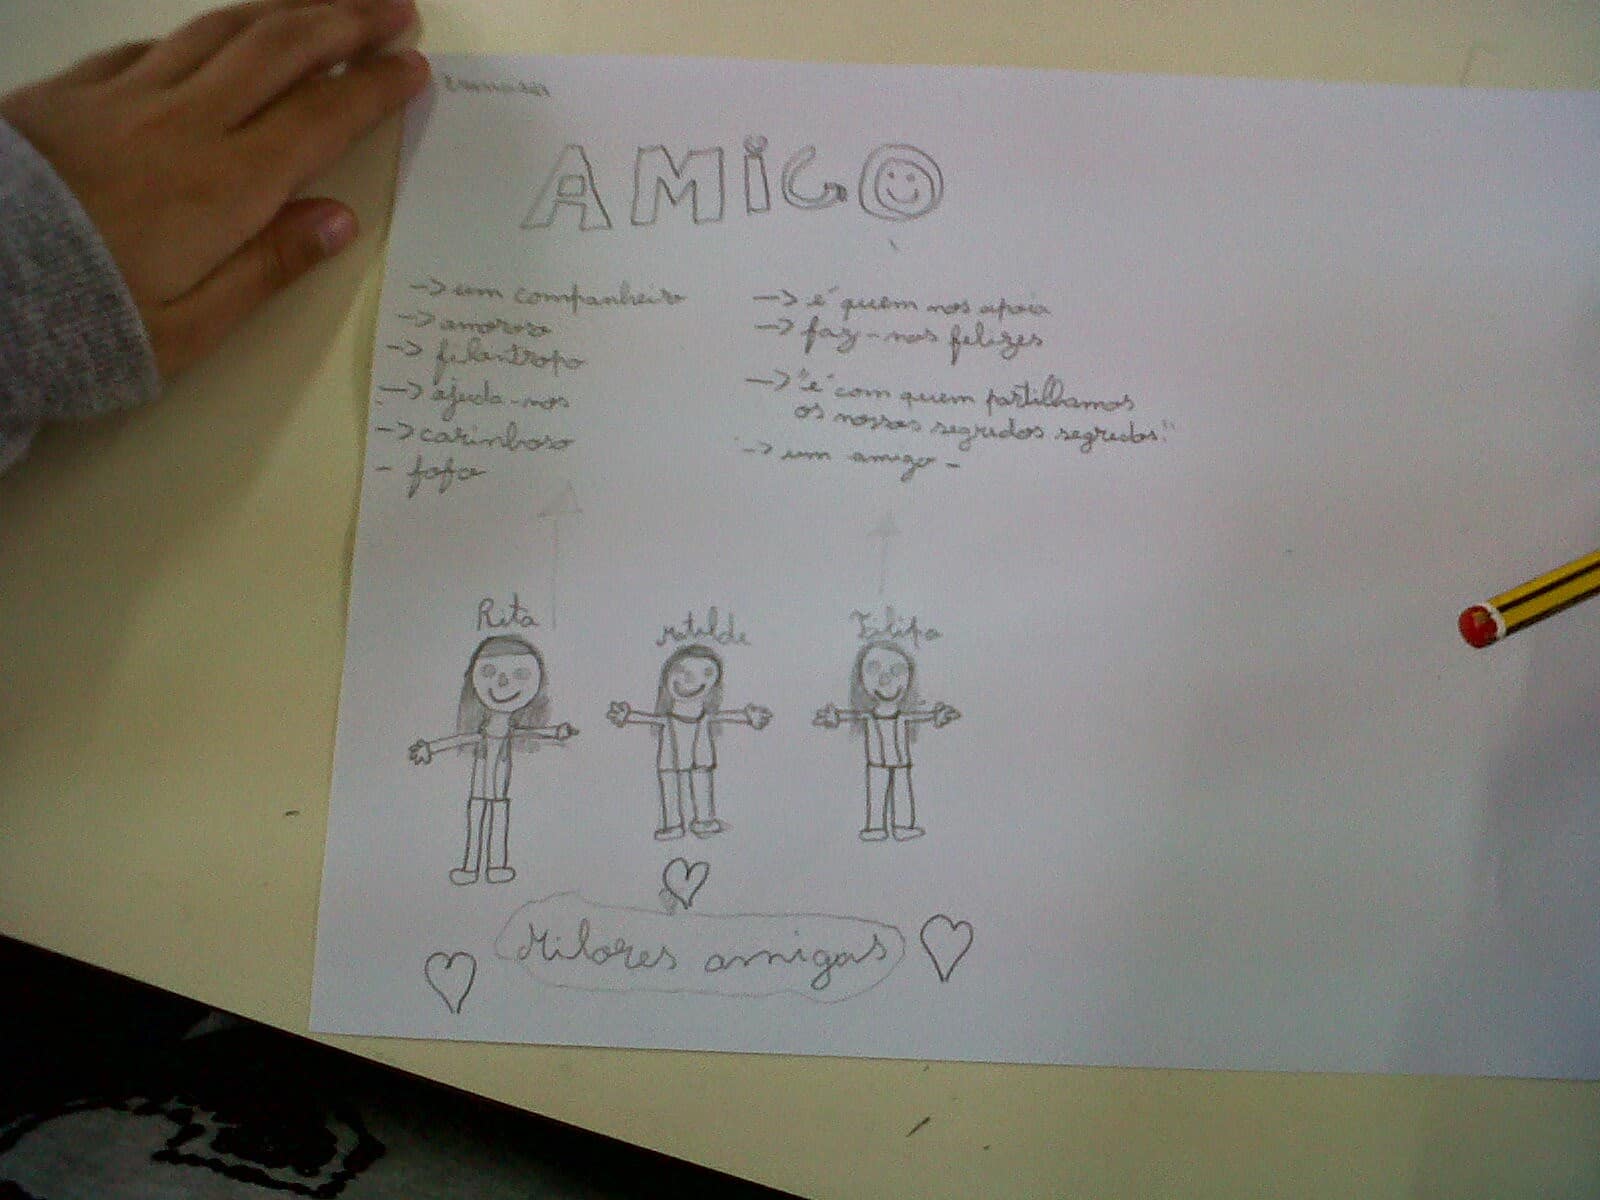 AMiGO
-> um companheiro
-> amoroso
-> filentropo
-> ajuda-nos
-> carinhoso
- fofo
-> é quem nos apoia
-> faz-nos felizes
-> "é com quem partilhamos
os nossos segredos segredos."
-> um amigo -
Rita
Matilde
Filipa
Milores amigas